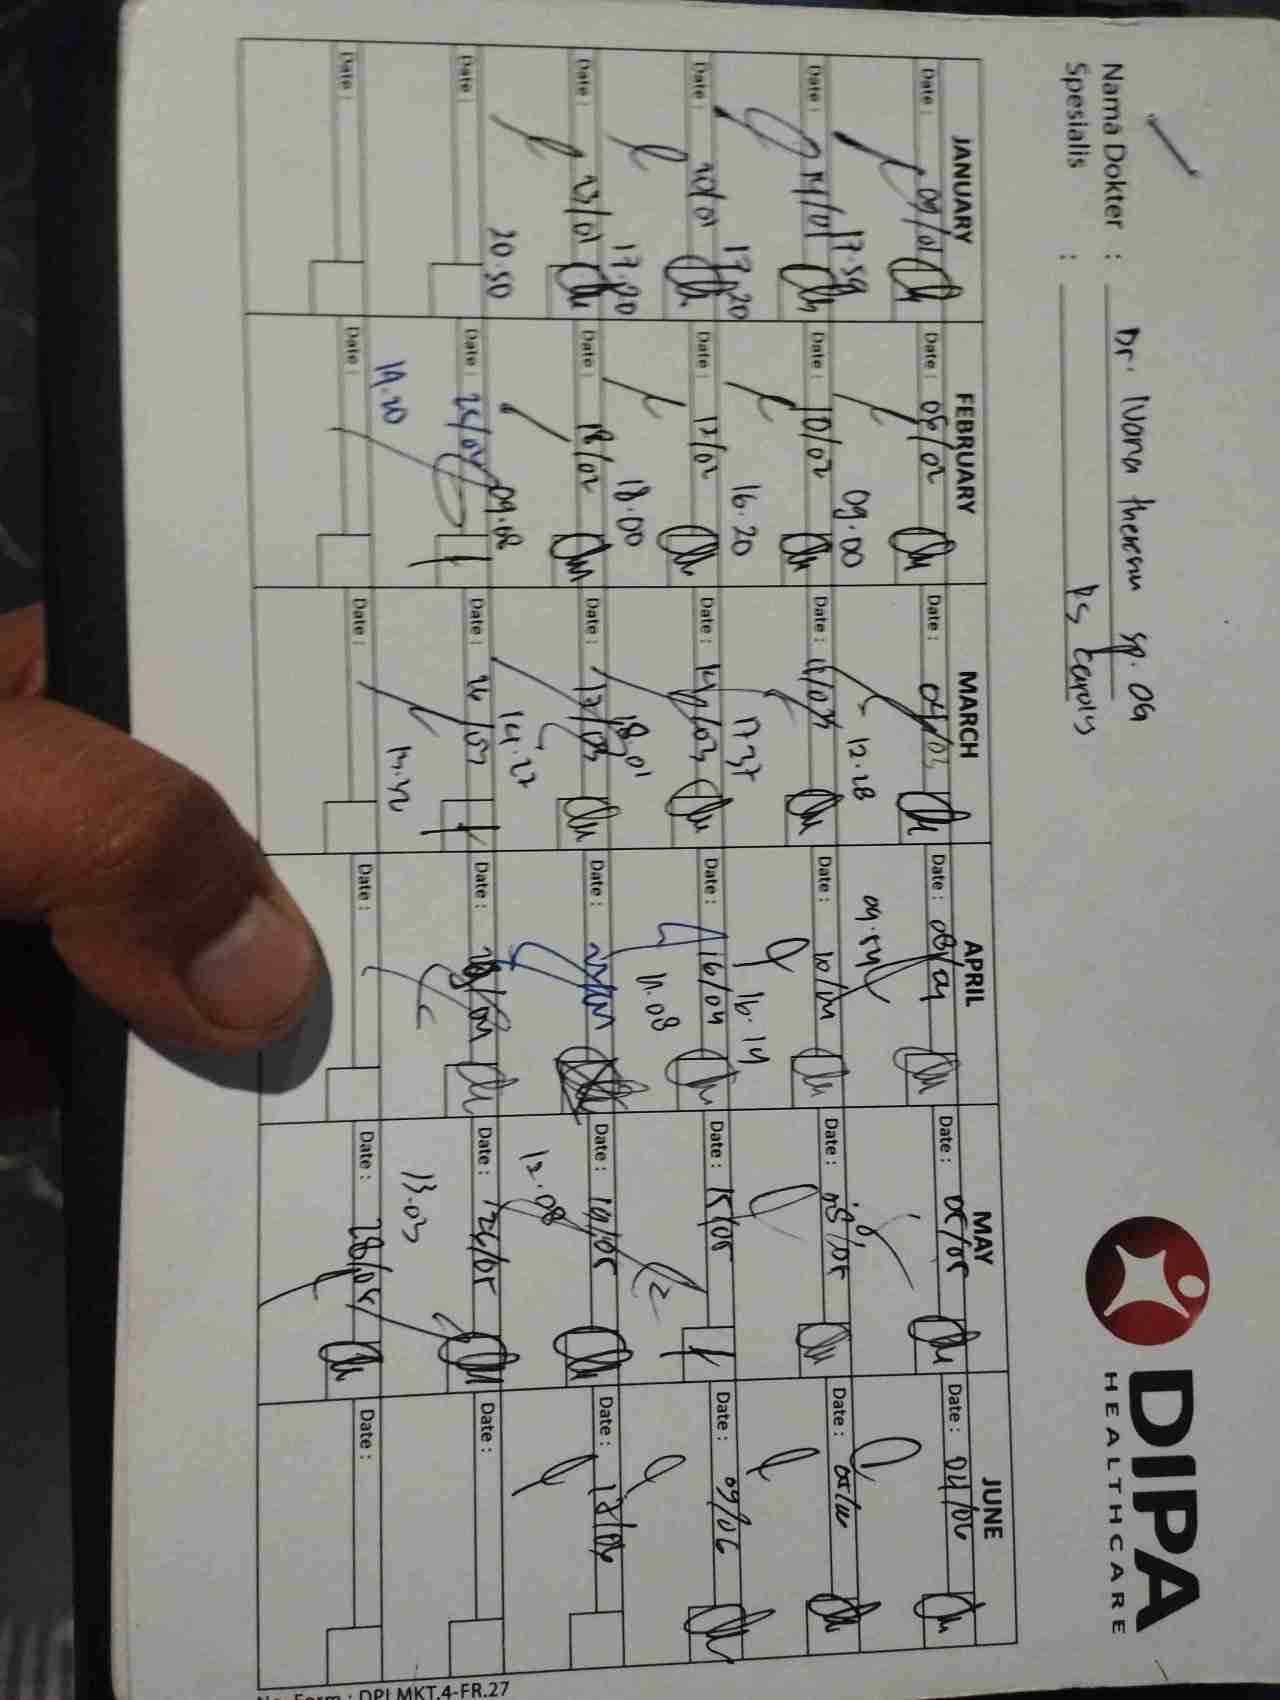 DIPA
HEALTHCARE
Nama Dokter : Dr. Ivana theresia sp. OG
Spesialis : RS Carolus
JANUARY FEBRUARY MARCH APRIL MAY JUNE
Date : 09/01 Date : 05/02 Date : 04/03 Date : 08/04 Date : 05/05 Date : 04/06
17.59 09.00 12.28 09.54
Date : 14/01 Date : 10/02 Date : 11/03 Date : 10/04 Date : 08/05 Date :
17.20 16.20 17.37 16.14
Date : 20/01 Date : 12/02 Date : 14/03 Date : 16/04 Date : 15/05 Date : 09/06
17.20 18.00 18.01 11.08
Date : 23/01 Date : 18/02 Date : 17/03 Date : Date : 19/05 Date :
20.50 09.08 14.27 12.08
Date : Date : Date : Date : Date : 26/05 Date :
19.20 13.03
Date : Date : Date : Date : Date : 28/05 Date :
No. Form : DPI.MKT.4-FR.27